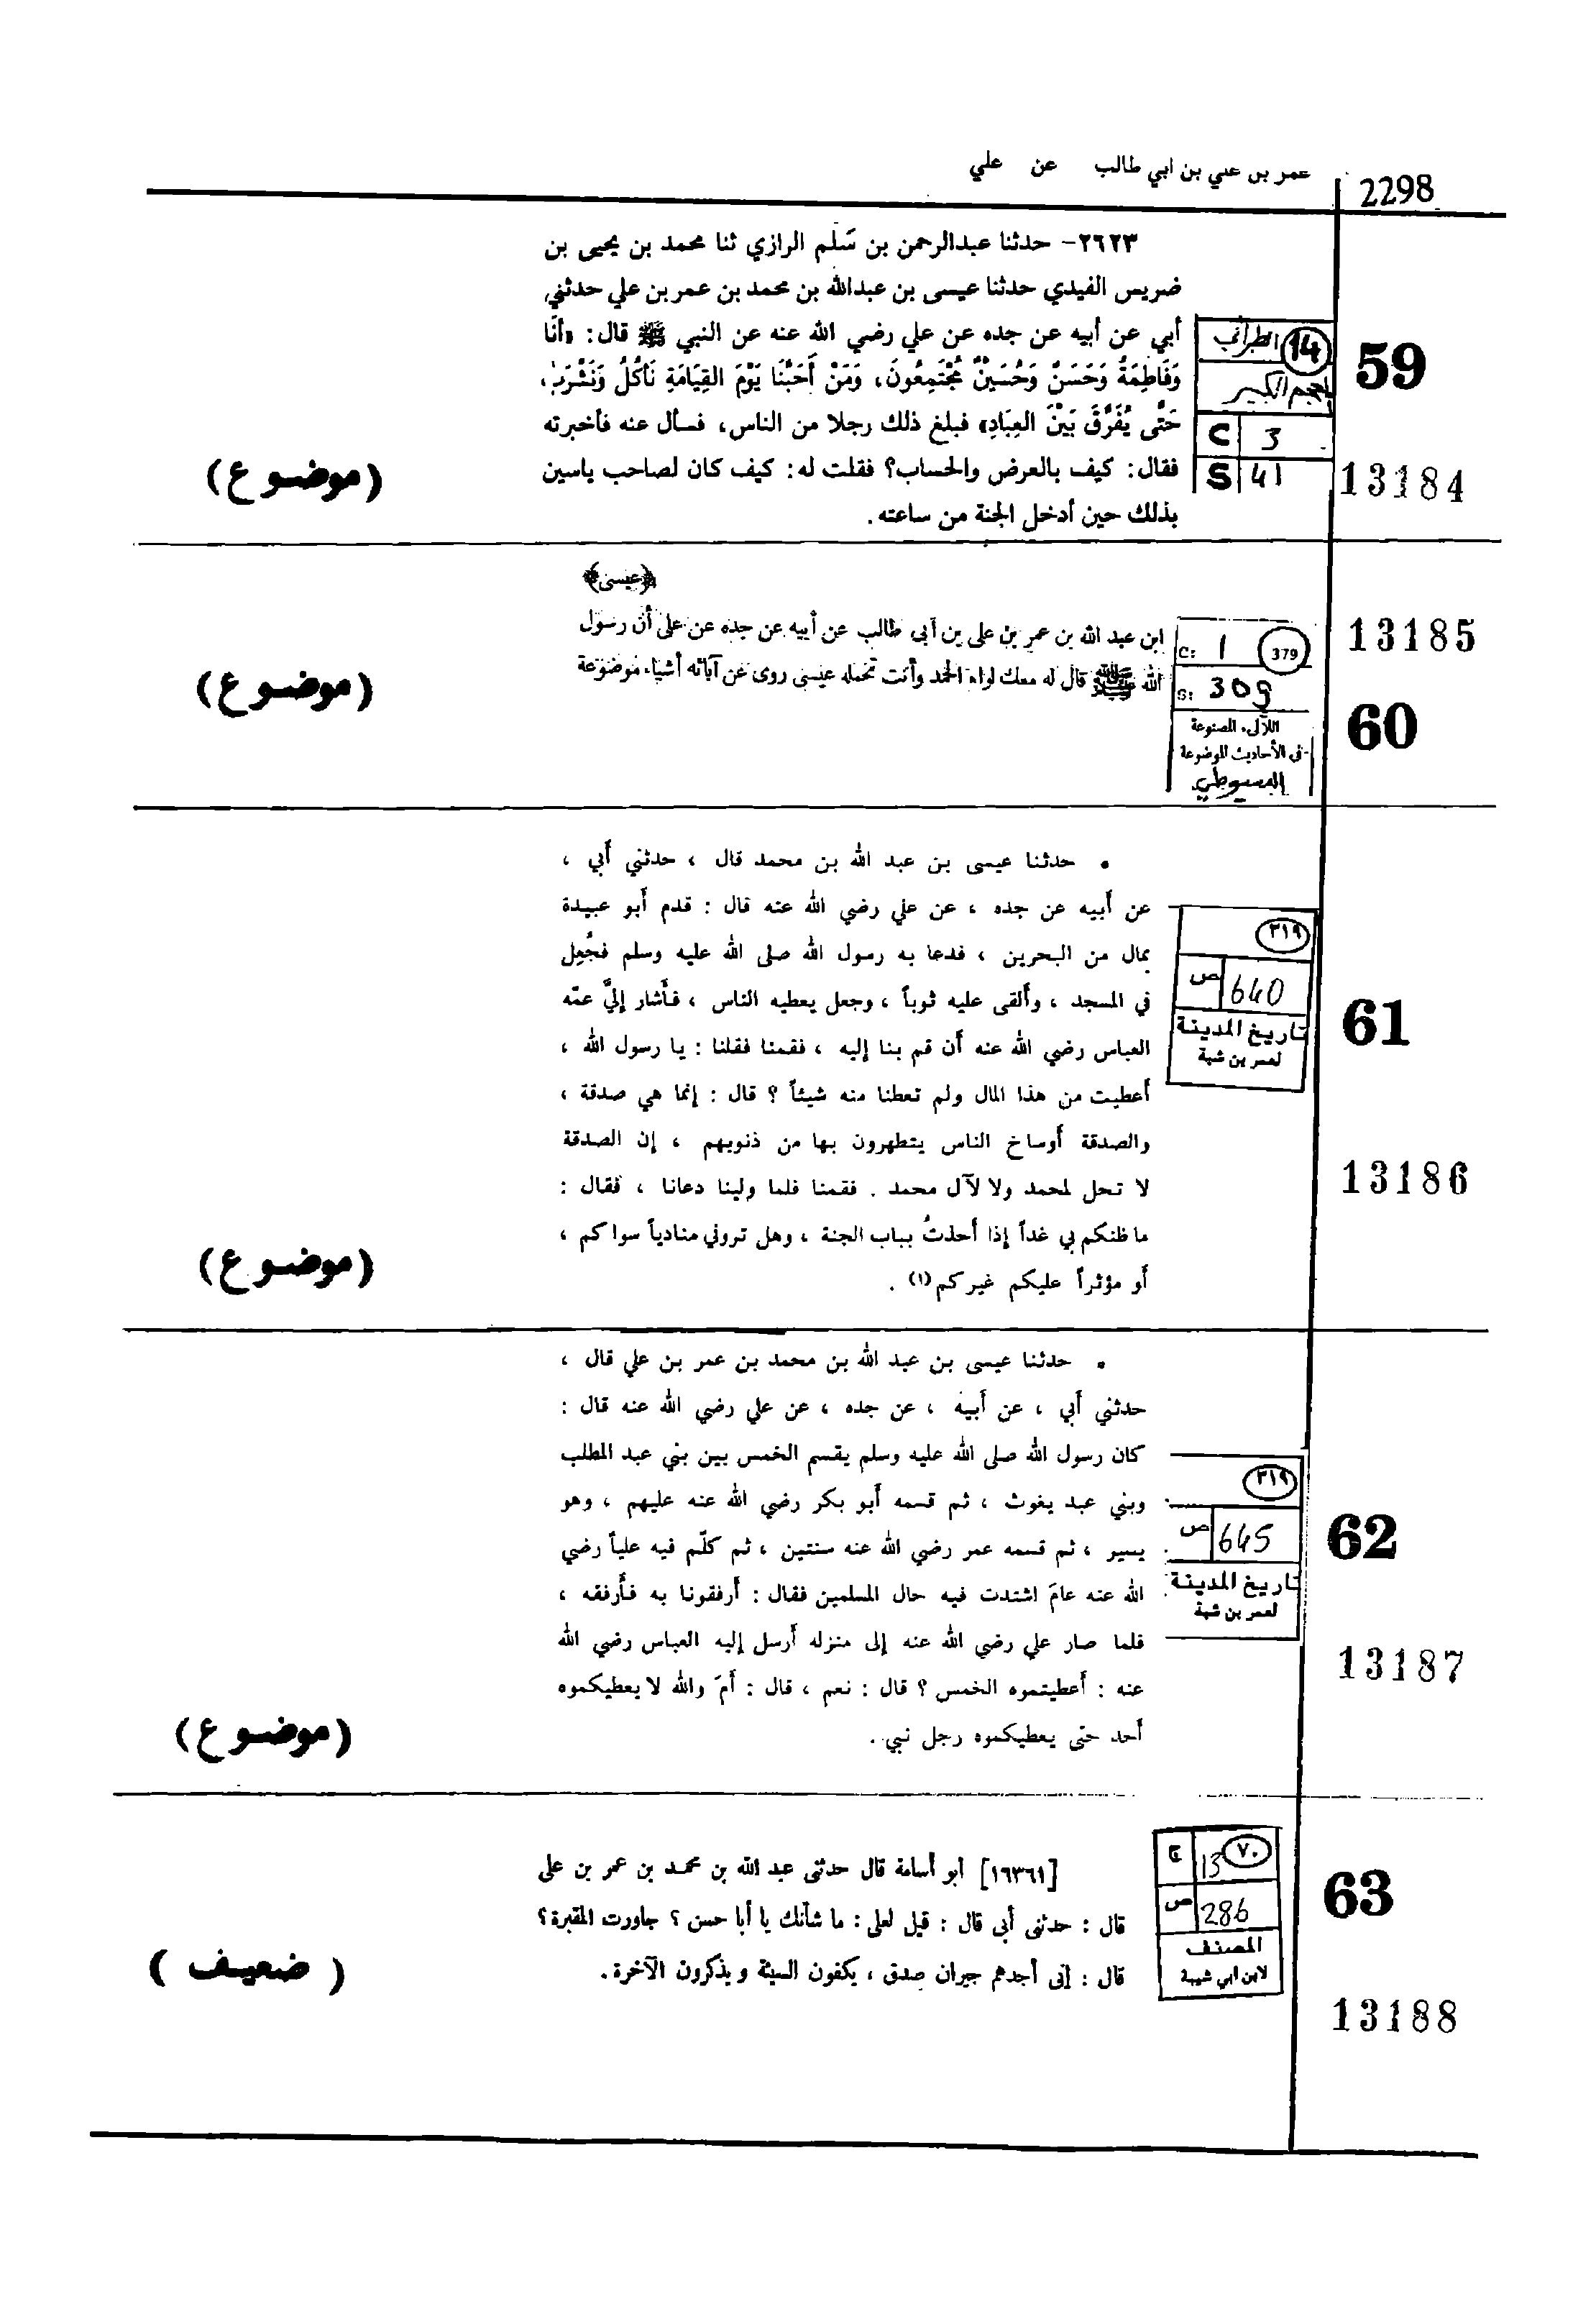 2298
عمر بن علي بن ابي طالب عن علي
٢٦٢٣- حدثنا عبدالرحمن بن سَلْم الرازي ثنا محمد بن يحيى بن
ضريس الفيدي حدثنا عيسى بن عبدالله بن محمد بن عمر بن علي حدثني
أبي عن أبيه عن جده عن علي رضي الله عنه عن النبي ﷺ قال: «أَنَا
وَفَاطِمَةُ وَحَسَنٌ وَحُسَيْنٌ مُجْتَمِعُونَ، وَمَنْ أَحَبَّنَا يَوْمَ القِيَامَةِ نَأْكُلُ وَنَشْرَبُ،
حَتَّى يُفَرَّقَ بَيْنَ العِبَادِ» فبلغ ذلك رجلا من الناس، فسأل عنه فأخبرته
فقال: كيف بالعرض والحساب؟ فقلت له: كيف كان لصاحب ياسين
بذلك حين أدخل الجنة من ساعته.
14 الطبراني
المعجم الكبير
C 3
S 41
59
13184
(موضوع)
﴿عيسى﴾
ابن عبد الله بن عمر بن على بن أبى طالب عن أبيه عن جده عن على أن رسول
الله ﷺ قال له معك لواء الحمد وأنت تحمله عيسى روى عن آبائه أشياء موضوعة
C: 1 379
S: 309
اللآلىء المصنوعة
فى الأحاديث الموضوعة
السيوطي
13185
60
(موضوع)
• حدثنا عيسى بن عبد الله بن محمد قال ، حدثني أَبي ،
عن أَبيه عن جده ، عن علي رضي الله عنه قال : قدم أَبو عبيدة
بمال من البحرين ، فدعا به رسول الله صلى الله عليه وسلم فجُعِل
في المسجد ، وأَلقى عليه ثوباً ، وجعل يعطيه الناس ، فأَشار إليَّ عمّه
العباس رضي الله عنه أَن قم بنا إليه ، فقمنا فقلنا : يا رسول الله ،
أَعطيت من هذا المال ولم تعطنا منه شيئاً ؟ قال : إنما هي صدقة ،
والصدقة أَوساخ الناس يتطهرون بها من ذنوبهم ، إن الصدقة
لا تحل لمحمد ولا لآل محمد . فقمنا فلما ولينا دعانا ، فقال :
ما ظنكم بي غداً إذا أَخذتُ بباب الجنة ، وهل تروني منادياً سواكم ،
أَو مؤثراً عليكم غيركم(١) .
٣١٩
ص 640
تاريخ المدينة
لعمر بن شبة
61
13186
(موضوع)
• حدثنا عيسى بن عبد الله بن محمد بن عمر بن علي قال ،
حدثني أَبي ، عن أَبيه ، عن جده ، عن علي رضي الله عنه قال :
كان رسول الله صلى الله عليه وسلم يقسم الخمس بين بني عبد المطلب
وبني عبد يغوث ، ثم قسمه أَبو بكر رضي الله عنه عليهم ، وهو
يسير ، ثم قسمه عمر رضي الله عنه سنتين ، ثم كلّم فيه علياً رضي
الله عنه عامَ اشتدت فيه حال المسلمين فقال : أَرفقونا به فأَرفقه ،
فلما صار علي رضي الله عنه إلى منزله أَرسل إليه العباس رضي الله
عنه : أَعطيتموه الخمس ؟ قال : نعم ، قال : أَمَ والله لا يعطيكموه
أَحد حتى يعطيكموه رجل نبي .
٣١٩
ص 645
تاريخ المدينة
لعمر بن شبة
62
13187
(موضوع)
[١٦٣٦١] أبو أسامة قال حدثنى عبد الله بن محمد بن عمر بن على
قال : حدثنى أبى قال : قيل لعلى : ما شأنك يا أبا حسن ؟ جاورت المقبرة؟
قال : إنى أجدهم جيران صدق ، يكفون السيئة ويذكرون الآخرة .
ج 13 ٧٠
ص 286
المصنف
لابن ابي شيبة
63
13188
( ضعيف )